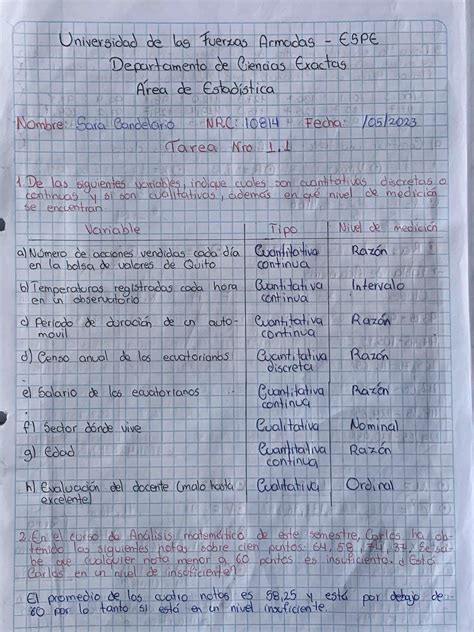 Universidad de las Fuerzas Armadas - ESPE
Departamento de Ciencias Exactas
Área de Estadística
Nombre: Sara Candelario NRC: 10814 Fecha: /05/2023
Tarea Nro. 1.1
1. De las siguientes variables, indique cuales son cuantitativas discretas o
continuas y si son cualitativas, además en qué nivel de medición
se encuentran
Variable Tipo Nivel de medición
a) Número de acciones vendidas cada día Cuantitativa Razón
en la bolsa de valores de Quito continua
b) Temperaturas registradas cada hora Cuantitativa Intervalo
en un observatorio continua
c) Período de duración de un auto- Cuantitativa Razón
movil continua
d) Censo anual de los ecuatorianos Cuantitativa Razón
discreta
e) Salario de los ecuatorianos Cuantitativa Razón
continua
f) Sector dónde vive Cualitativa Nominal
g) Edad Cuantitativa Razón
continua
h) Evaluación del docente (malo hasta Cualitativa Ordinal
excelente)
2. En el curso de Análisis matemático de este semestre, Carlos ha ob-
tenido las siguientes notas sobre cien puntos: 64, 58, 74, 37. Se sa-
be que cualquier nota menor a 60 puntos es insuficiente. ¿Está
Carlos en un nivel de insuficiente?
El promedio de las cuatro notas es 58,25 y está por debajo de
60 por lo tanto si está en un nivel insuficiente.